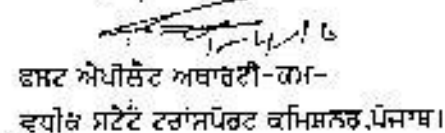 ਫਸਟ ਐਪੀਲੇਟ ਅਥਾਰਟੀ-ਕਮ-
ਵਧੀਕ ਸਟੇਟ ਟਰਾਂਸਪੋਰਟ ਕਮਿਸ਼ਨਰ,ਪੰਜਾਬ।